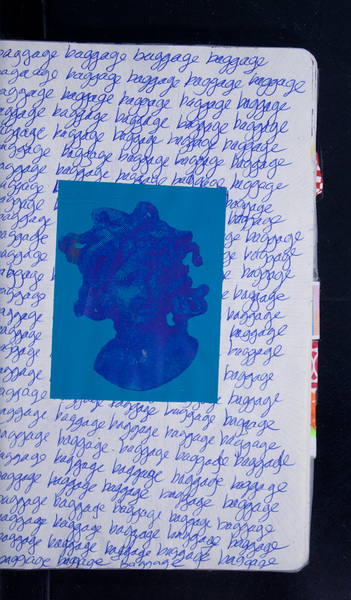 baggage baggage baggage baggage
baggage baggage baggage baggage baggage
baggage baggage baggage baggage
baggage baggage baggage baggage baggage
baggage baggage baggage baggage baggage
baggage baggage baggage baggage baggage
baggage baggage baggage baggage baggage
baggage baggage
baggage baggage
baggage baggage
baggage baggage
baggage baggage
baggage baggage
baggage baggage
baggage baggage
baggage baggage
baggage baggage
baggage baggage
baggage baggage baggage baggage
baggage baggage baggage baggage baggage
baggage baggage baggage baggage baggage
baggage baggage baggage baggage baggage
baggage baggage baggage baggage baggage
baggage baggage baggage baggage
baggage baggage baggage baggage
baggage baggage baggage baggage
baggage baggage baggage baggage